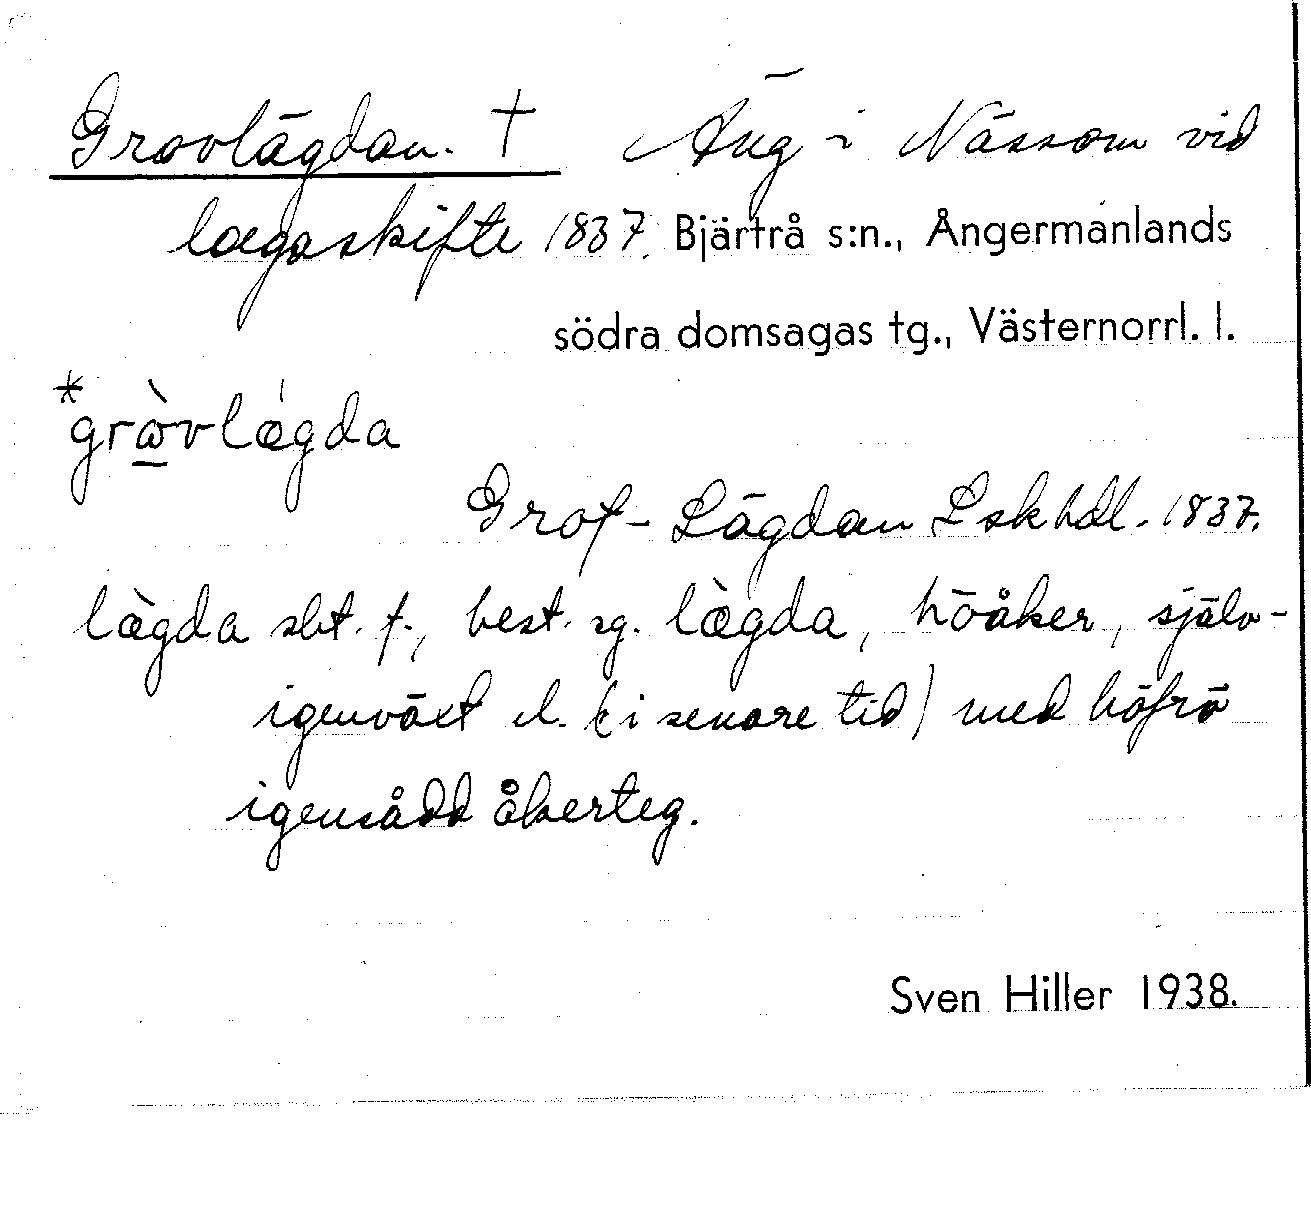 Grovlägdan. † Äng i Nässom vid
lagaskifte 1837. Bjärtrå s:n., Ångermanlands
södra domsagas tg., Västernorrl. l.
*grὼvlǽgda
Grof-Lägdan Lskhdl. 1837.
læ̀gda sbt. f., best. sg. læ̀gda, höåker, själv-
igenväxt el. (i senare tid) med höfrö
igensådd åkerteg.
Sven Hiller 1938.